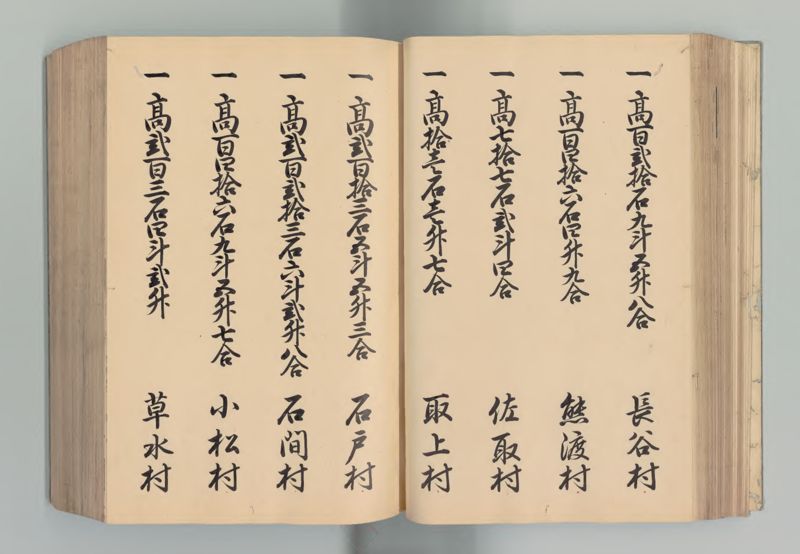 一高百弐拾石九斗五升八合 長谷村
一高百四拾六石四升九合 熊渡村
一高七拾七石弐斗四合 佐取村
一高拾壱石壱升七合 取上村
一高弐百拾三石五斗五升三合 石戸村
一高弐百弐拾三石六斗弐升八合 石間村
一高百四拾六石九斗五升七合 小松村
一高弐百三石四斗弐升 草水村